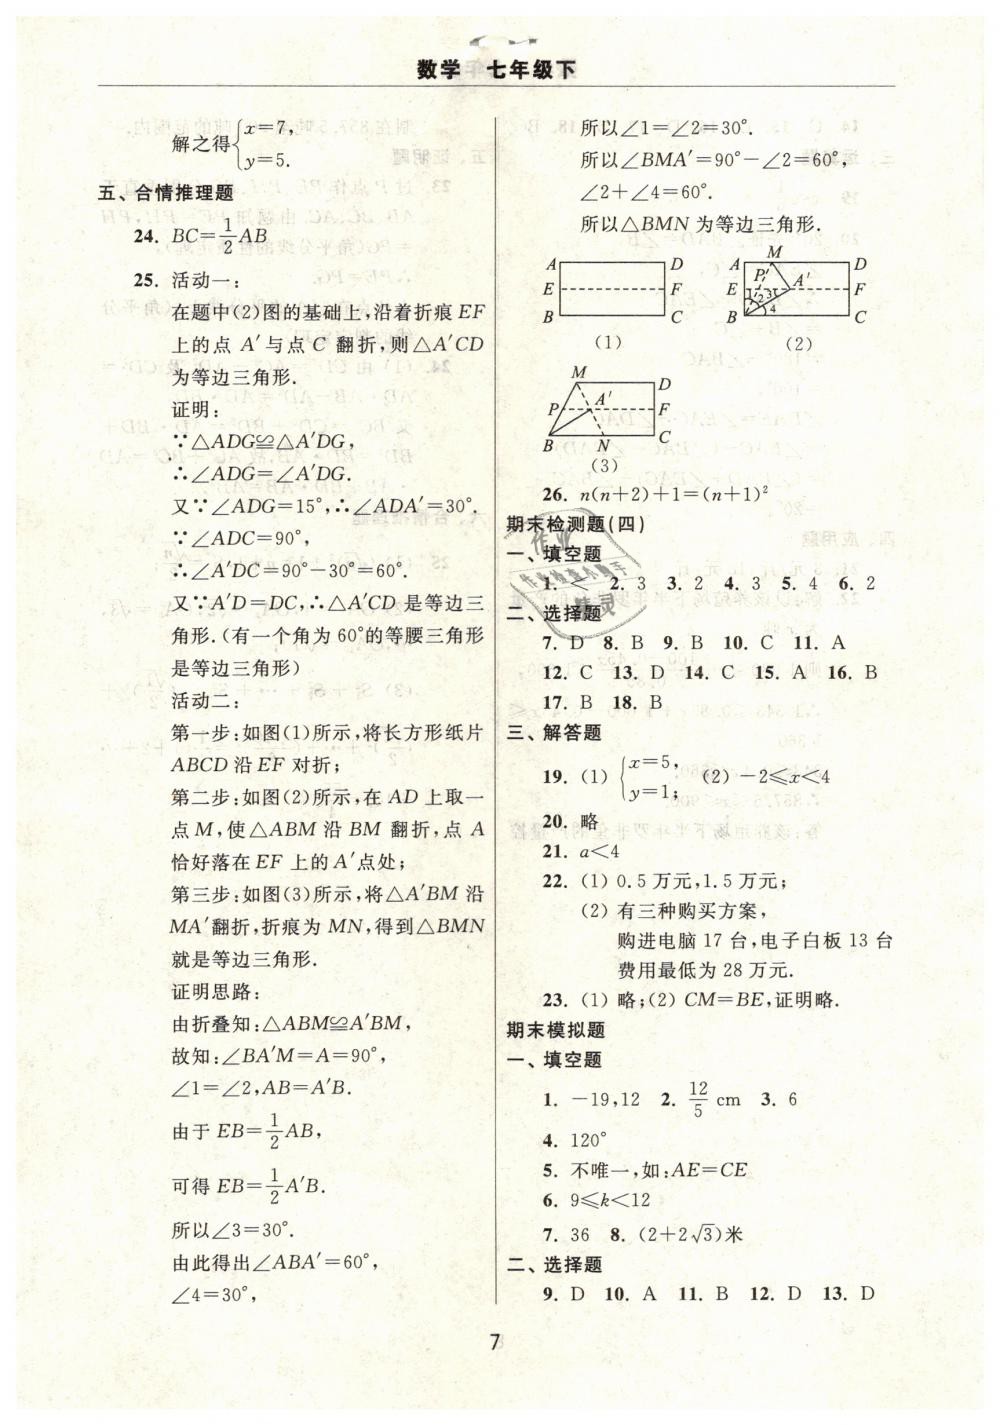 数学 七年级下
解之得{x=7,
y=5.
五、合情推理题
24. BC=1/2AB
25. 活动一:
在题中(2)图的基础上,沿着折痕 EF
上的点 A′与点 C 翻折,则△A′CD
为等边三角形.
证明:
∵△ADG≌△A′DG,
∴∠ADG=∠A′DG.
又∵∠ADG=15°,∴∠ADA′=30°.
∵∠ADC=90°,
∴∠A′DC=90°-30°=60°.
又∵A′D=DC,∴△A′CD 是等边三
角形.(有一个角为 60°的等腰三角形
是等边三角形)
活动二:
第一步:如图(1)所示,将长方形纸片
ABCD 沿 EF 对折;
第二步:如图(2)所示,在 AD 上取一
点 M,使△ABM 沿 BM 翻折,点 A
恰好落在 EF 上的 A′点处;
第三步:如图(3)所示,将△A′BM 沿
MA′翻折,折痕为 MN,得到△BMN
就是等边三角形.
证明思路:
由折叠知:△ABM≌A′BM,
故知:∠BA′M=A=90°,
∠1=∠2,AB=A′B.
由于 EB=1/2AB,
可得 EB=1/2A′B.
所以∠3=30°.
由此得出∠ABA′=60°,
∠4=30°,
所以∠1=∠2=30°.
所以∠BMA′=90°-∠2=60°,
∠2+∠4=60°.
所以△BMN 为等边三角形.
A D
E F
B C
(1)
M
A D
P′ A′
E F
1 2 3
4
B C
(2)
M D
P A′ F
B N C
(3)
26. n(n+2)+1=(n+1)²
期末检测题(四)
一、填空题
1. < 2. 3 3. 2 4. 3 5. 4 6. 2
二、选择题
7. D 8. B 9. B 10. C 11. A
12. C 13. D 14. C 15. A 16. B
17. B 18. B
三、解答题
19. (1) {x=5,
y=1; (2) -2≤x<4
20. 略
21. a<4
22. (1) 0.5 万元,1.5 万元;
(2) 有三种购买方案,
购进电脑 17 台,电子白板 13 台
费用最低为 28 万元.
23. (1) 略;(2) CM=BE,证明略.
期末模拟题
一、填空题
1. -19,12 2. 12/5 cm 3. 6
4. 120°
5. 不唯一,如:AE=CE
6. 9≤k<12
7. 36 8. (2+2√3)米
二、选择题
9. D 10. A 11. B 12. D 13. D
7